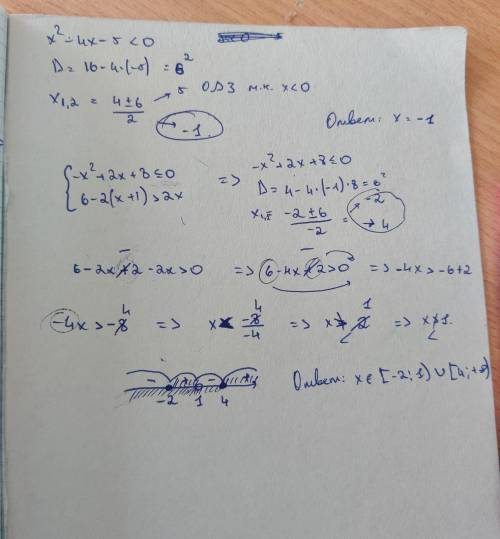 x² - 4x - 5 < 0
D = 16 - 4·(-5) = 6²
x₁,₂ = (4 ± 6)/2 → 5 ОДЗ т.к. x < 0
→ -1
Ответ: x = -1
{ -x² + 2x + 8 ≤ 0 => -x² + 2x + 8 ≤ 0
6 - 2(x+1) > 2x
D = 4 - 4·(-1)·8 = 6²
x₁,₂ = (-2 ± 6)/-2 = -2
→ 4
6 - 2x - 2 - 2x > 0 => 6 - 4x - 2 > 0 => -4x > -6 + 2
-4x > -4 => x < -4/-4 => x < 1 => x < 1.
-2 1 4
Ответ: x ∈ [-2; 1) ∪ [4; +∞)